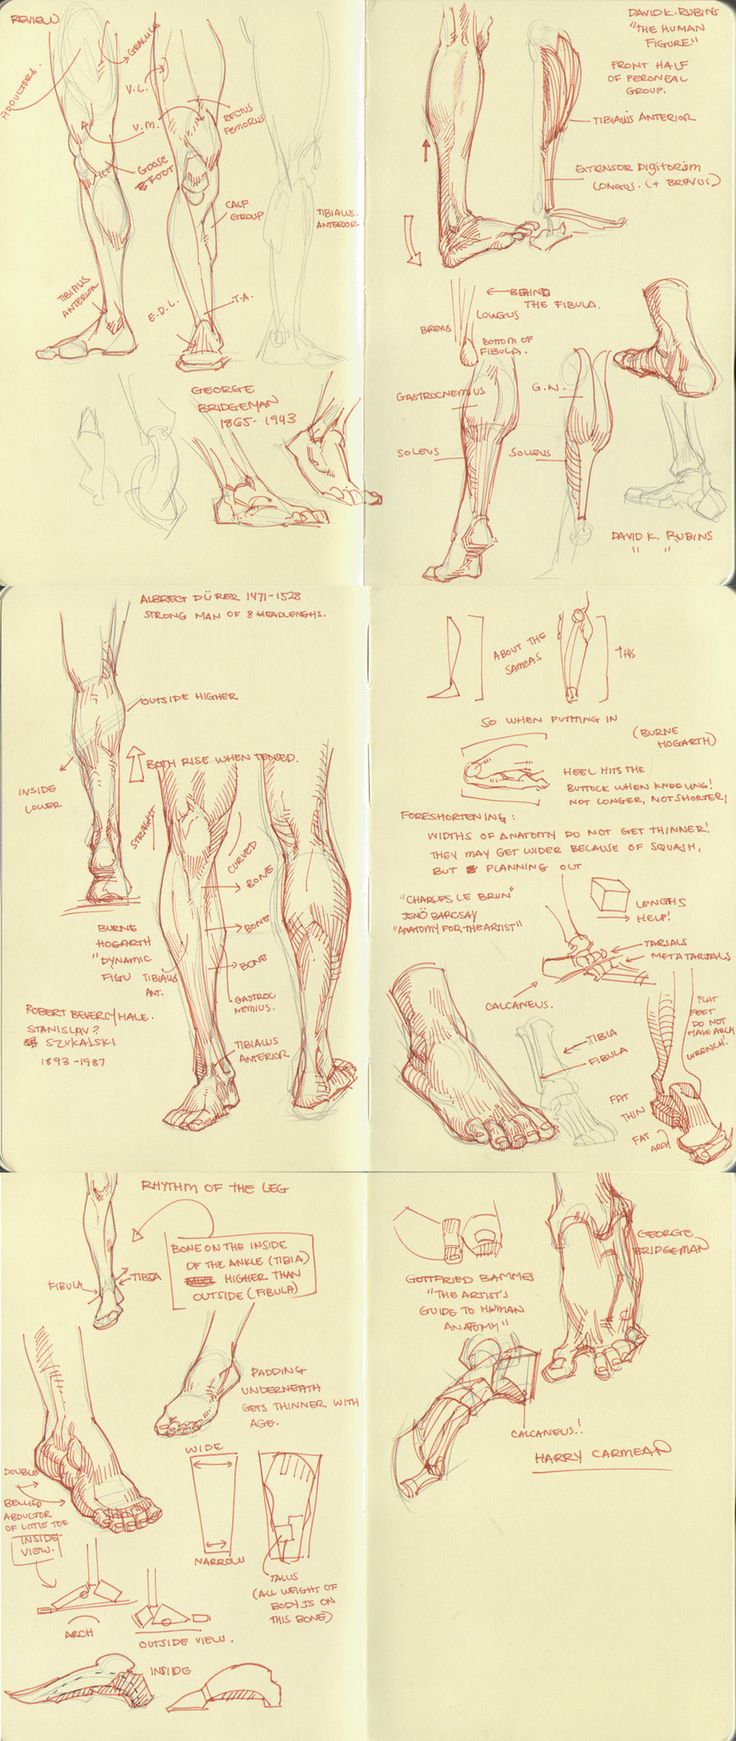 REVIEW
ADDUCTORS.
GRACILIS
V.L.
A
V.M.
RECTUS
FEMORUS
GOOSE
FOOT
CALF
GROUP
TIBIALIS
ANTERIOR
TIBIALIS
ANTERIOR
E.D.L.
T.A.
GEORGE
BRIDGEMAN
1865-1943
DAVID K. RUBINS
"THE HUMAN
FIGURE"
FRONT HALF
OF PERONEAL
GROUP.
TIBIALIS ANTERIOR
EXTENSOR DIGITORIEM
LONGUS. (+ BREVUS)
BEHIND
THE FIBULA.
BREVIS
LONGUS
BOTTOM OF
FIBULA.
GASTROCNEMIUS
G.N.
SOLEUS
SOLEUS
DAVID K. RUBINS
" "
ALBRECT DÜRER 1471-1528
STRONG MAN OF 8 HEADLENGHS.
OUTSIDE HIGHER
BOTH RISE WHEN TENSED.
INSIDE
LOWER
STRAIGHT
CURVED
BONE
BONE
BONE
BURNE
HOGARTH
"DYNAMIC
FIGU
TIBIALIS
ANT.
GASTROC
NEMIUS.
ROBERT BEVERLY HALE.
STANISLAV?
SZUKALSKI
1893-1987
TIBIALIS
ANTERIOR
ABOUT THE
SAME AS
THIS
SO WHEN PUTTING IN
(BURNE
HOGARTH)
HEEL HITS THE
BUTTOCK WHEN KNEELING!
NOT LONGER, NOT SHORTER!
FORESHORTENING:
WIDTHS OF ANATOMY DO NOT GET THINNER!
THEY MAY GET WIDER BECAUSE OF SQUASH,
BUT PLANNING OUT
LENGHS
HELP!
"CHARLES LE BRUN"
JENÖ BARCSAY
"ANATOMY FOR THE ARTIST"
TARSALS
METATARSALS
CALCANEUS.
TIBIA
FIBULA
FLAT
FEET
DO NOT
HAVE ARCH
WRENCH!
FAT
THIN
FAT
ARCH
RHYTHM OF THE LEG
BONE ON THE INSIDE
OF THE ANKLE (TIBIA)
HIGHER THAN
OUTSIDE (FIBULA)
FIBULA
TIBIA
PADDING
UNDERNEATH
GETS THINNER WITH
AGE.
DOUBLE
BELLIED
ABDUCTOR
OF LITTLE TOE
INSIDE
VIEW.
WIDE
NARROW
TALUS
(ALL WEIGHT OF
BODY IS ON
THIS BONE)
ARCH
OUTSIDE VIEW.
INSIDE
GOTTFRIED BAMMES
"THE ARTIST'S
GUIDE TO HUMAN
ANATOMY"
GEORGE
BRIDGEMAN
CALCANEUS!!
HARRY CARMEAN